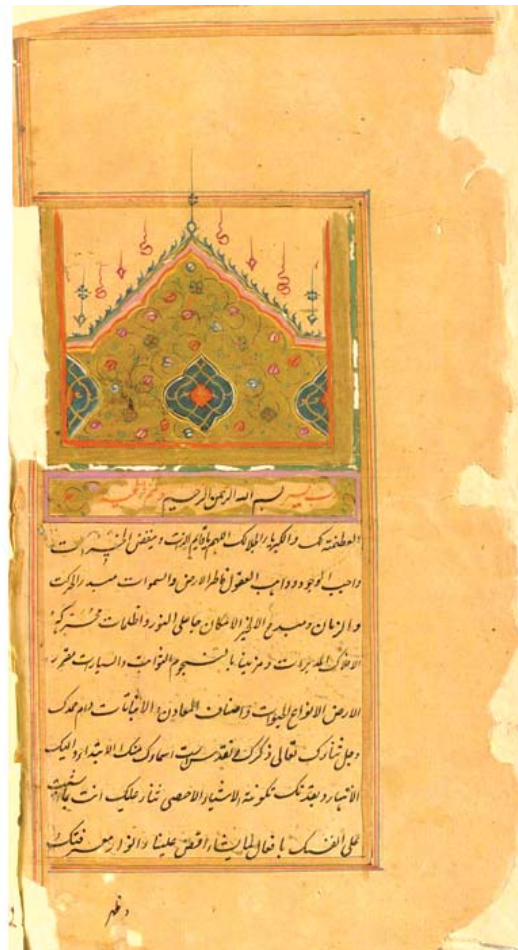 رب يسر بسم الله الرحمن الرحيم وتمم بالخير
العظمة لك والكبرياء لجلالك اللهم يا قايم الذات ومفيض الخيرات
واجب الوجود وواهب العقول فاطر الارض والسموات مبدء الحركت
والزمان ومبدع الحيز الامكان جاعل النور واظلمات محرك
الافلاك المديرات ومزينها بالنجوم الثوابت والسيارت مقرر
الارض الانواع الحيوات واصناف المعادن والانباتات دام حمدك
وجل ثنأرك تعالى ذكرك وتقدست اسماوك منك الابتداء واليك
الأنتهاء وبقدرتك تكونة الاشياء لاحصى ثناء عليك انت كما اثنيت
على نفسك يا فعال لما يشاء افض علينا والنوار معرفتك
وطهر